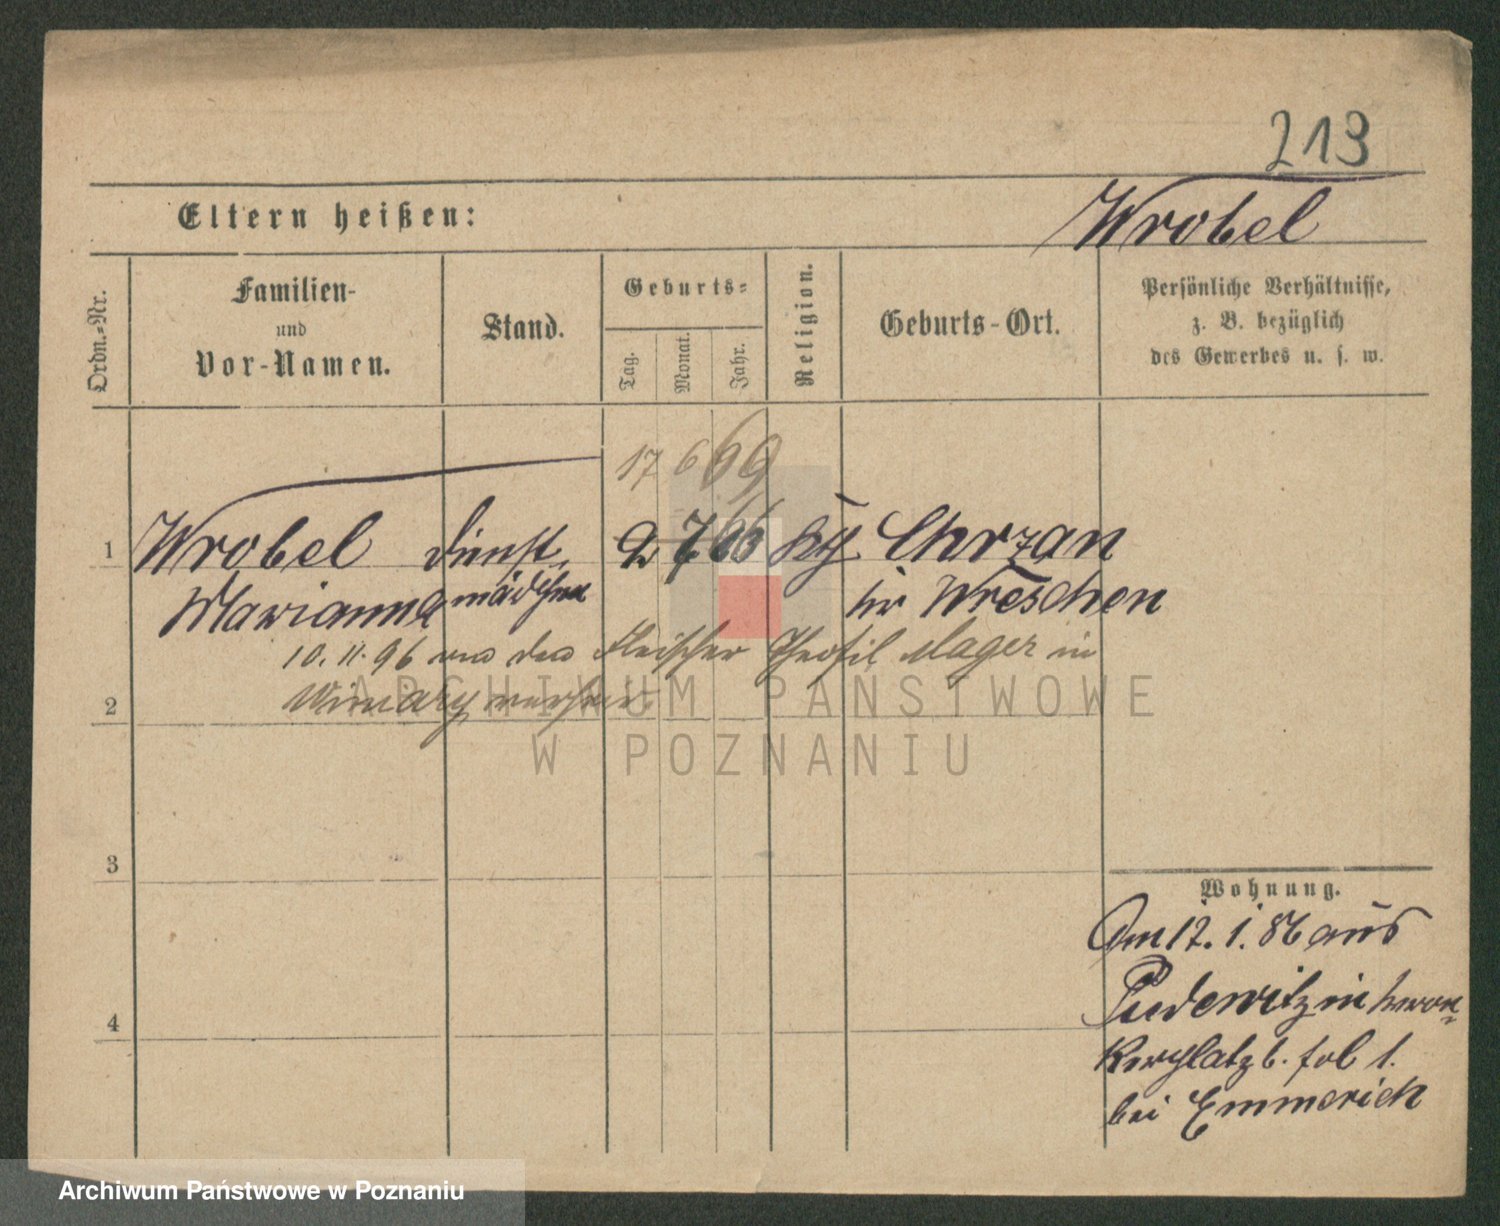 213
Eltern heißen:
Wrobel
Ordn.-Nr.
Familien-
und
Vor-Namen.
Stand.
Geburts-
Tag.
Monat.
Jahr.
Religion.
Geburts-Ort.
Persönliche Verhältnisse,
z. B. bezüglich
des Gewerbes u. s. w.
17 6 69
1 Wrobel dienst 2 7 66 Chrzan
Marianna mädchen in Wreschen
10. 11. 96 den Fleischer Theofil Mager in
2 Winiary
ARCHIWUM PAŃSTWOWE
W POZNANIU
3
Wohnung.
Am 12. 1. 86 aus
Pudewitz in
4
6. fol 1.
bei Emmerich
Archiwum Państwowe w Poznaniu